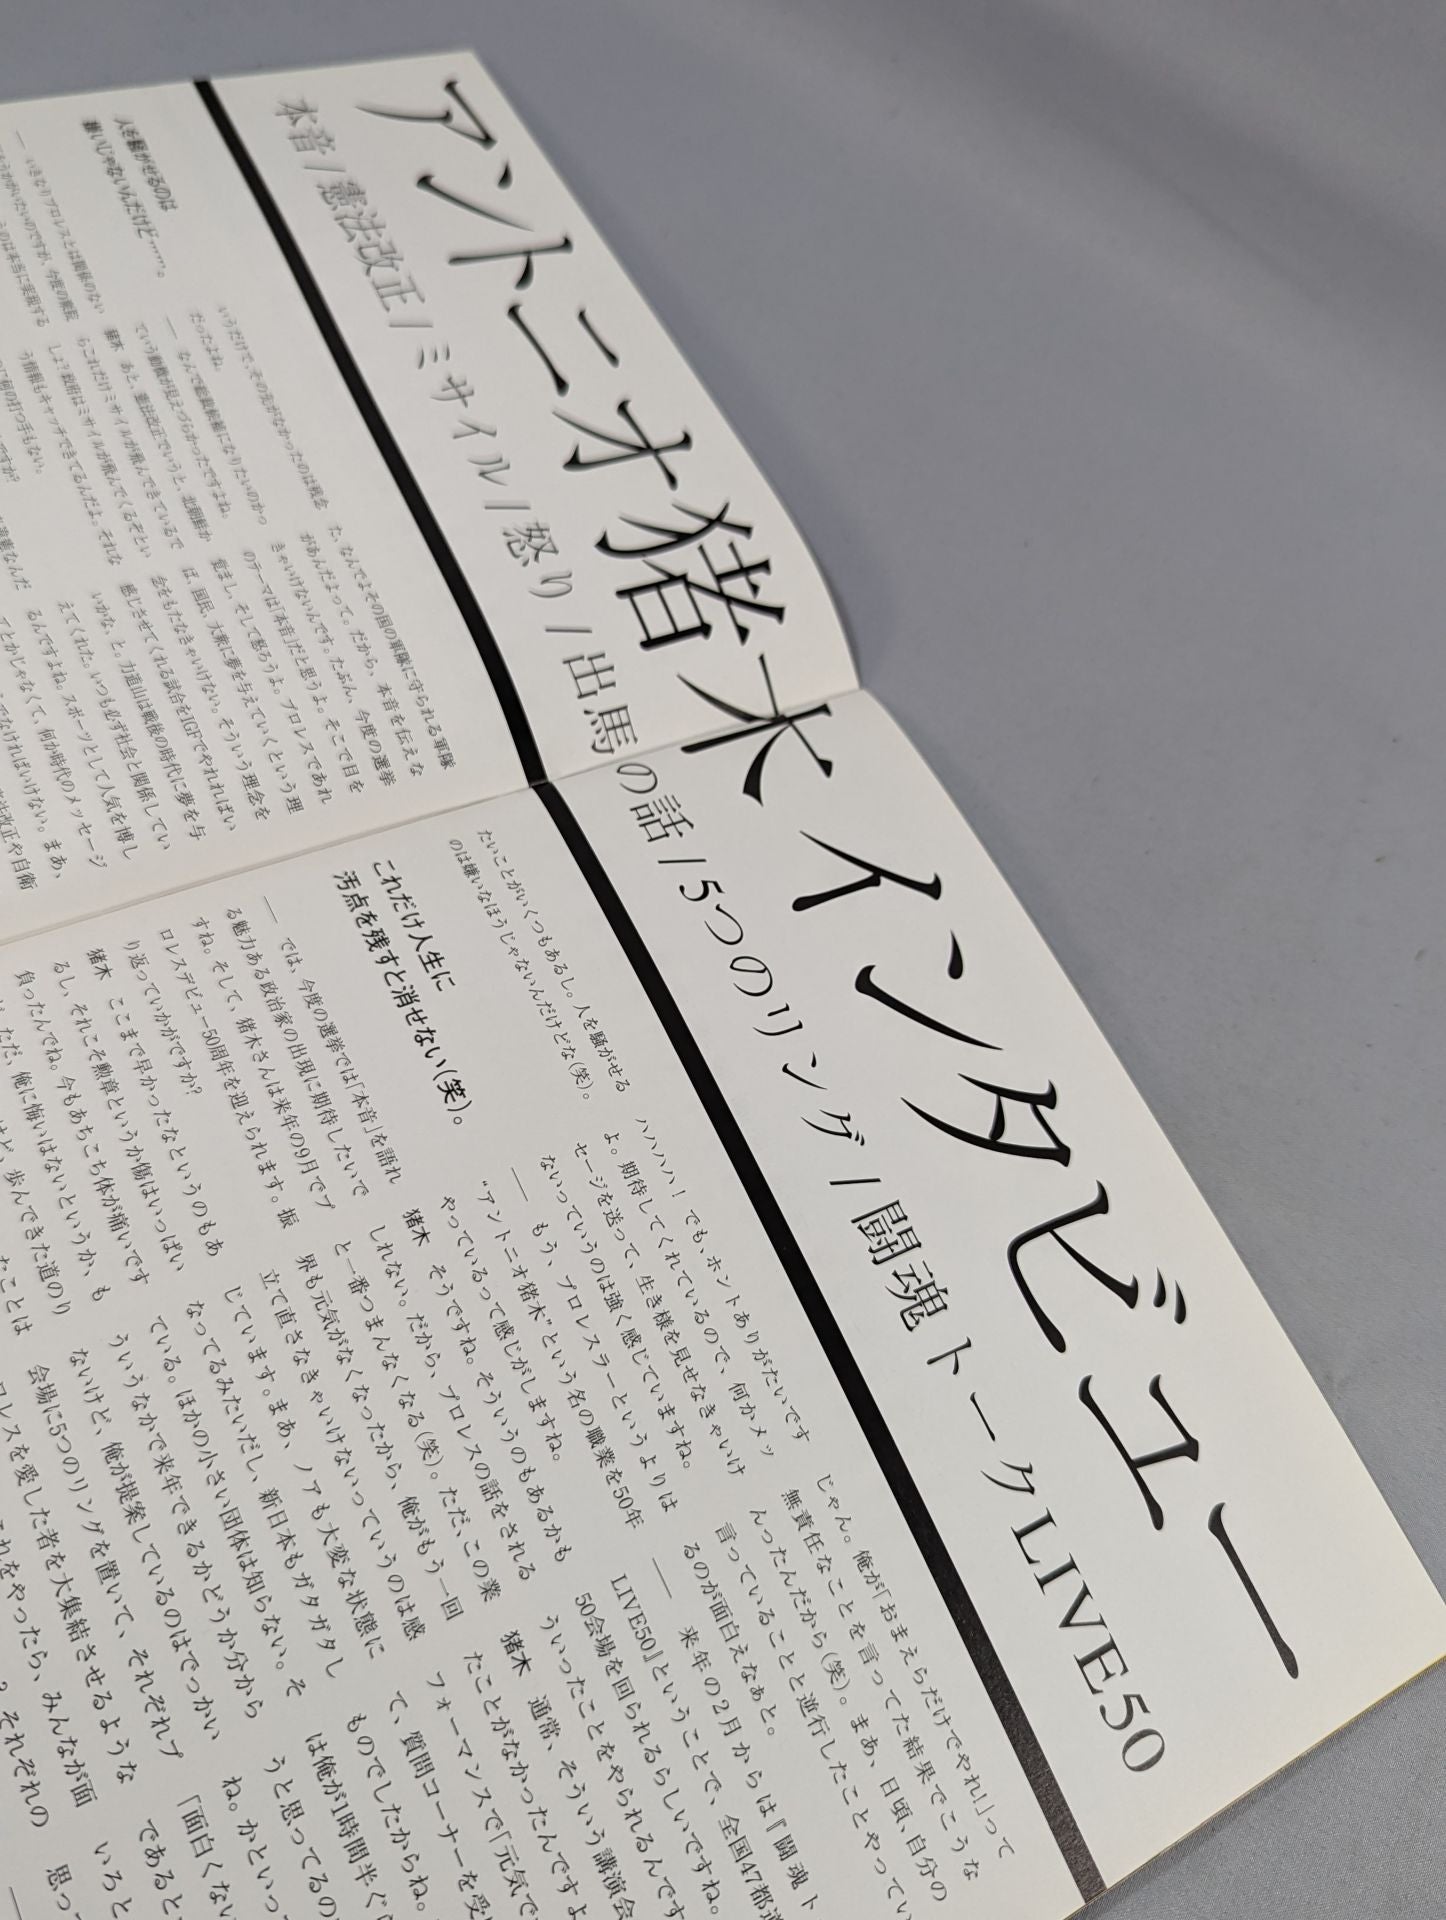 アントニオ猪木インタビュー
本音/憲法改正/ミサイル/怒り/出馬の話/5つのリング/闘魂トークLIVE50
人を騒がせるのは
嫌いじゃないんだけど……。
― いきなりプロレスとは関係のない
うかがいたいのですが、今度の衆院
うのは本当に実現する
いうだけで、その先がなかったのは残念
だったよね。
― なんで総裁候補になりたいのかっ
ていう動機が見えづらかったですよね。
猪木　あと、憲法改正でいうと、北朝鮮か
らこれだけミサイルが飛んできているで
しょ？政府はミサイルが飛んでくるぞとい
う情報もキャッチできてるんだよ。それな
に何の打つ手もない。
た、なんでよその国の軍隊に守られる軍隊
があんだよって。だから、本音を伝えな
きゃいけないんです。たぶん、今度の選挙
のテーマは「本音」だと思うよ。そこで目を
覚まし、そして怒ろうよ。プロレスであれ
ば、国民、大衆に夢を与えていくという理
念をもたなきゃいけない。そういう理念を
感じさせてくれる試合をIGFでやれればい
いかな、と。力道山は戦後の時代に夢を与
えてくれた。いつも必ず社会と関係してい
るんですよね。スポーツとして人気を博し
てとかじゃなくて、何か時代のメッセージ
でなければいけない。まあ、
法改正や自衛
たいことがいくつもあるし。人を騒がせる
のは嫌いなほうじゃないんだけどな(笑)。
これだけ人生に
汚点を残すと消せない(笑)。
― では、今度の選挙では「本音」を語れ
る魅力ある政治家の出現に期待したいで
すね。そして、猪木さんは来年の9月でプ
ロレスデビュー50周年を迎えられます。振
り返っていかがですか？
猪木　ここまで早かったなというのもあ
るし、それこそ勲章というか傷はいっぱい
負ったんでね。今もあちこち体が痛いです
ただ、俺に悔いはないというか、も
けど、歩んできた道のり
たことは
ハハハハ！でも、ホントありがたいです
よ。期待してくれているので、何かメッ
セージを送って、生き様を見せなきゃいけ
ないっていうのは強く感じていますね。
― もう、プロレスラーというよりは
“アントニオ猪木”という名の職業を50年
やっているって感じがしますね。
猪木　そうですね。そういうのもあるかも
しれない。だから、プロレスの話をされる
と一番つまんなくなる(笑)。ただ、この業
界も元気がなくなったから、俺がもう一回
立て直さなきゃいけないっていうのは感
じています。まあ、ノアも大変な状態に
なってるみたいだし、新日本もガタガタし
ている。ほかの小さい団体は知らない。そ
ういうなかで来年できるかどうか分から
ないけど、俺が提案しているのはでっかい
会場に5つのリングを置いて、それぞれプ
ロレスを愛した者を大集結させるような
それをやったら、みんなが面
それぞれの
じゃん。俺が「おまえらだけでやれ！」って
無責任なことを言ってた結果でこうな
んったんだから(笑)。まあ、日頃、自分の
言っていることと逆行したことやってい
るのが面白えなあと。
― 来年の2月からは『闘魂ト
LIVE50』ということで、全国47都道
50会場を回られるらしいですね。
ういったことをやられるんです
猪木　通常、そういう講演会
たことがなかったんですよ
フォーマンスで「元気で
て、質問コーナーを受
ものでしたからね。
は俺が1時間半ぐ
うと思ってるの
ね。かといっ
「面白くない
であると
いろと
思っ